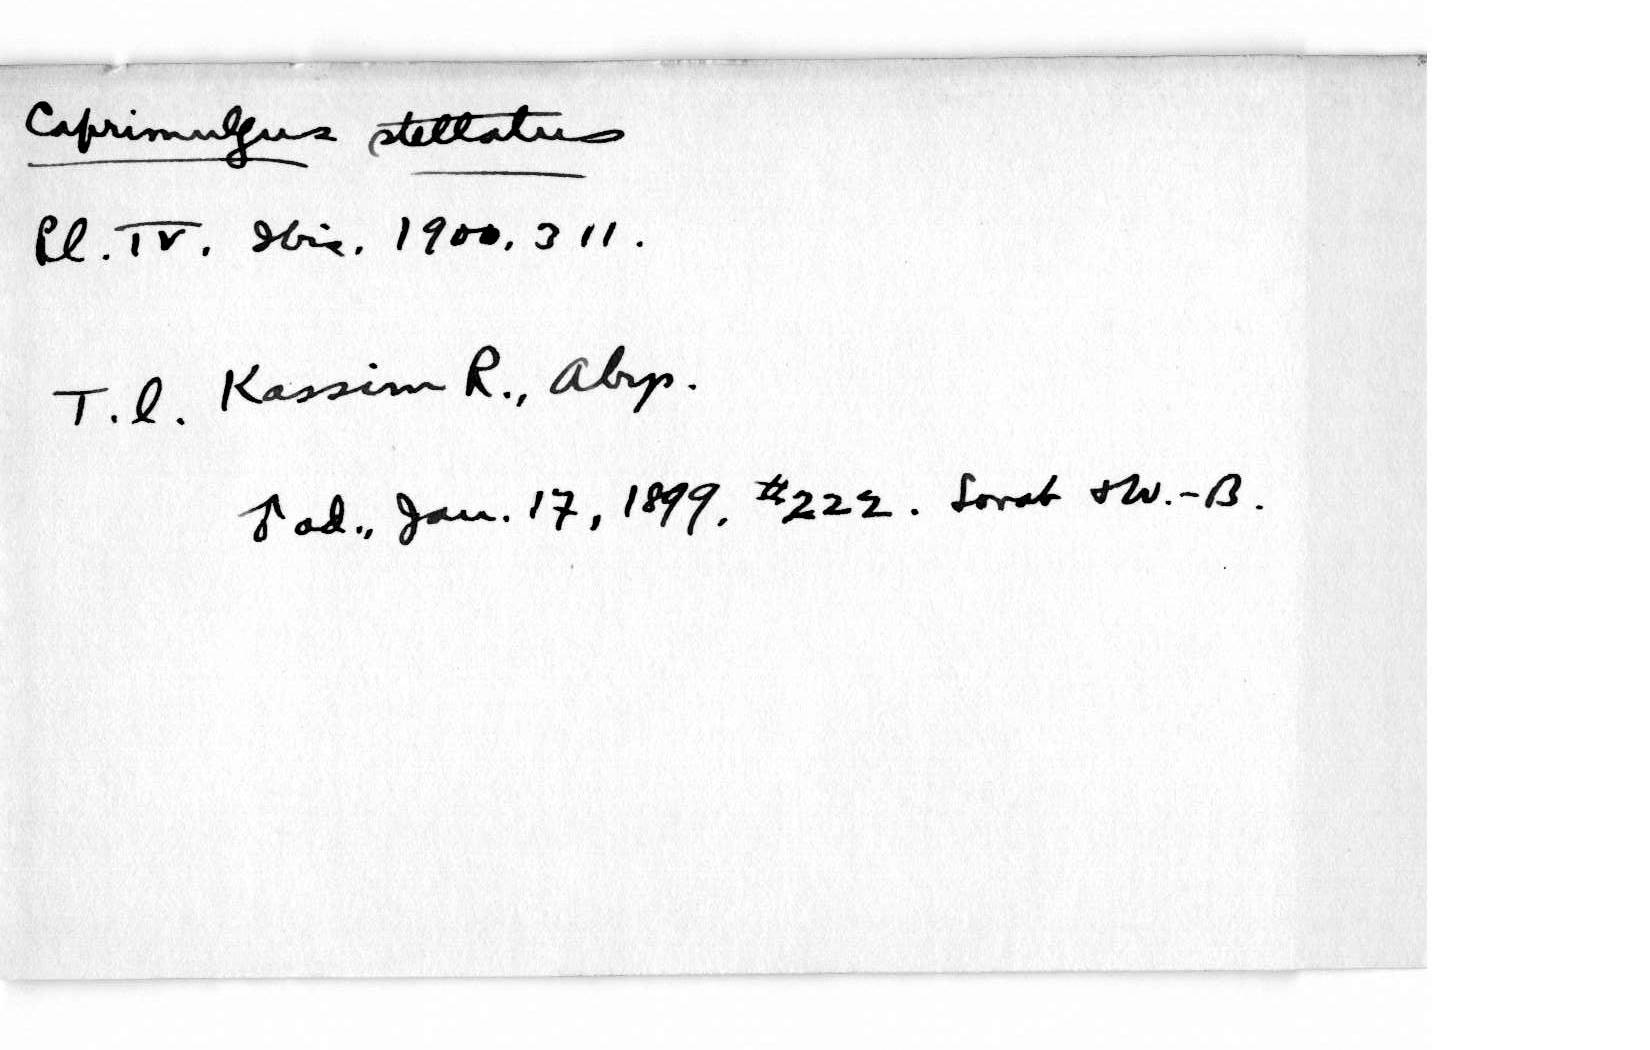 Caprimulgus stellatus
Pl. IV. Ibis. 1900. 311.
T.l. Kassim R., Abyp.
♂ ad., Jan. 17, 1899. #222. Lovat & W.-B.